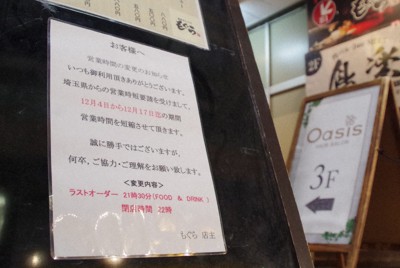 お客様へ
営業時間の変更のお知らせ
いつも御利用頂きありがとうございます。
埼玉県からの営業時短要請を受けまして、
12月4日から12月17日迄の期間
営業時間を短縮させて頂きます。
誠に勝手ではございますが、
何卒、ご協力・ご理解をお願い致します。
＜変更内容＞
ラストオーダー 21時30分(FOOD & DRINK)
閉店時間 22時
もぐら 店主
もぐら
Oasis
HAIR SALON
3F